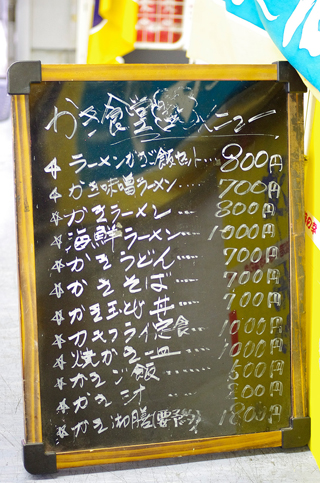 かき食堂 メニュー
☆ラーメンかき飯セット・・・800円
☆かき味噌ラーメン・・・・700円
☆かきラーメン・・・800円
☆海鮮ラーメン・・・1000円
☆かきうどん・・・・700円
☆かきそば・・・・700円
☆かき玉とじ丼・・・・700円
☆カキフライ定食・・・1000円
☆焼かき一皿・・・・1000円
☆かきご飯・・・・500円
☆かき汁・・・200円
☆かき御膳(要予約)1800円